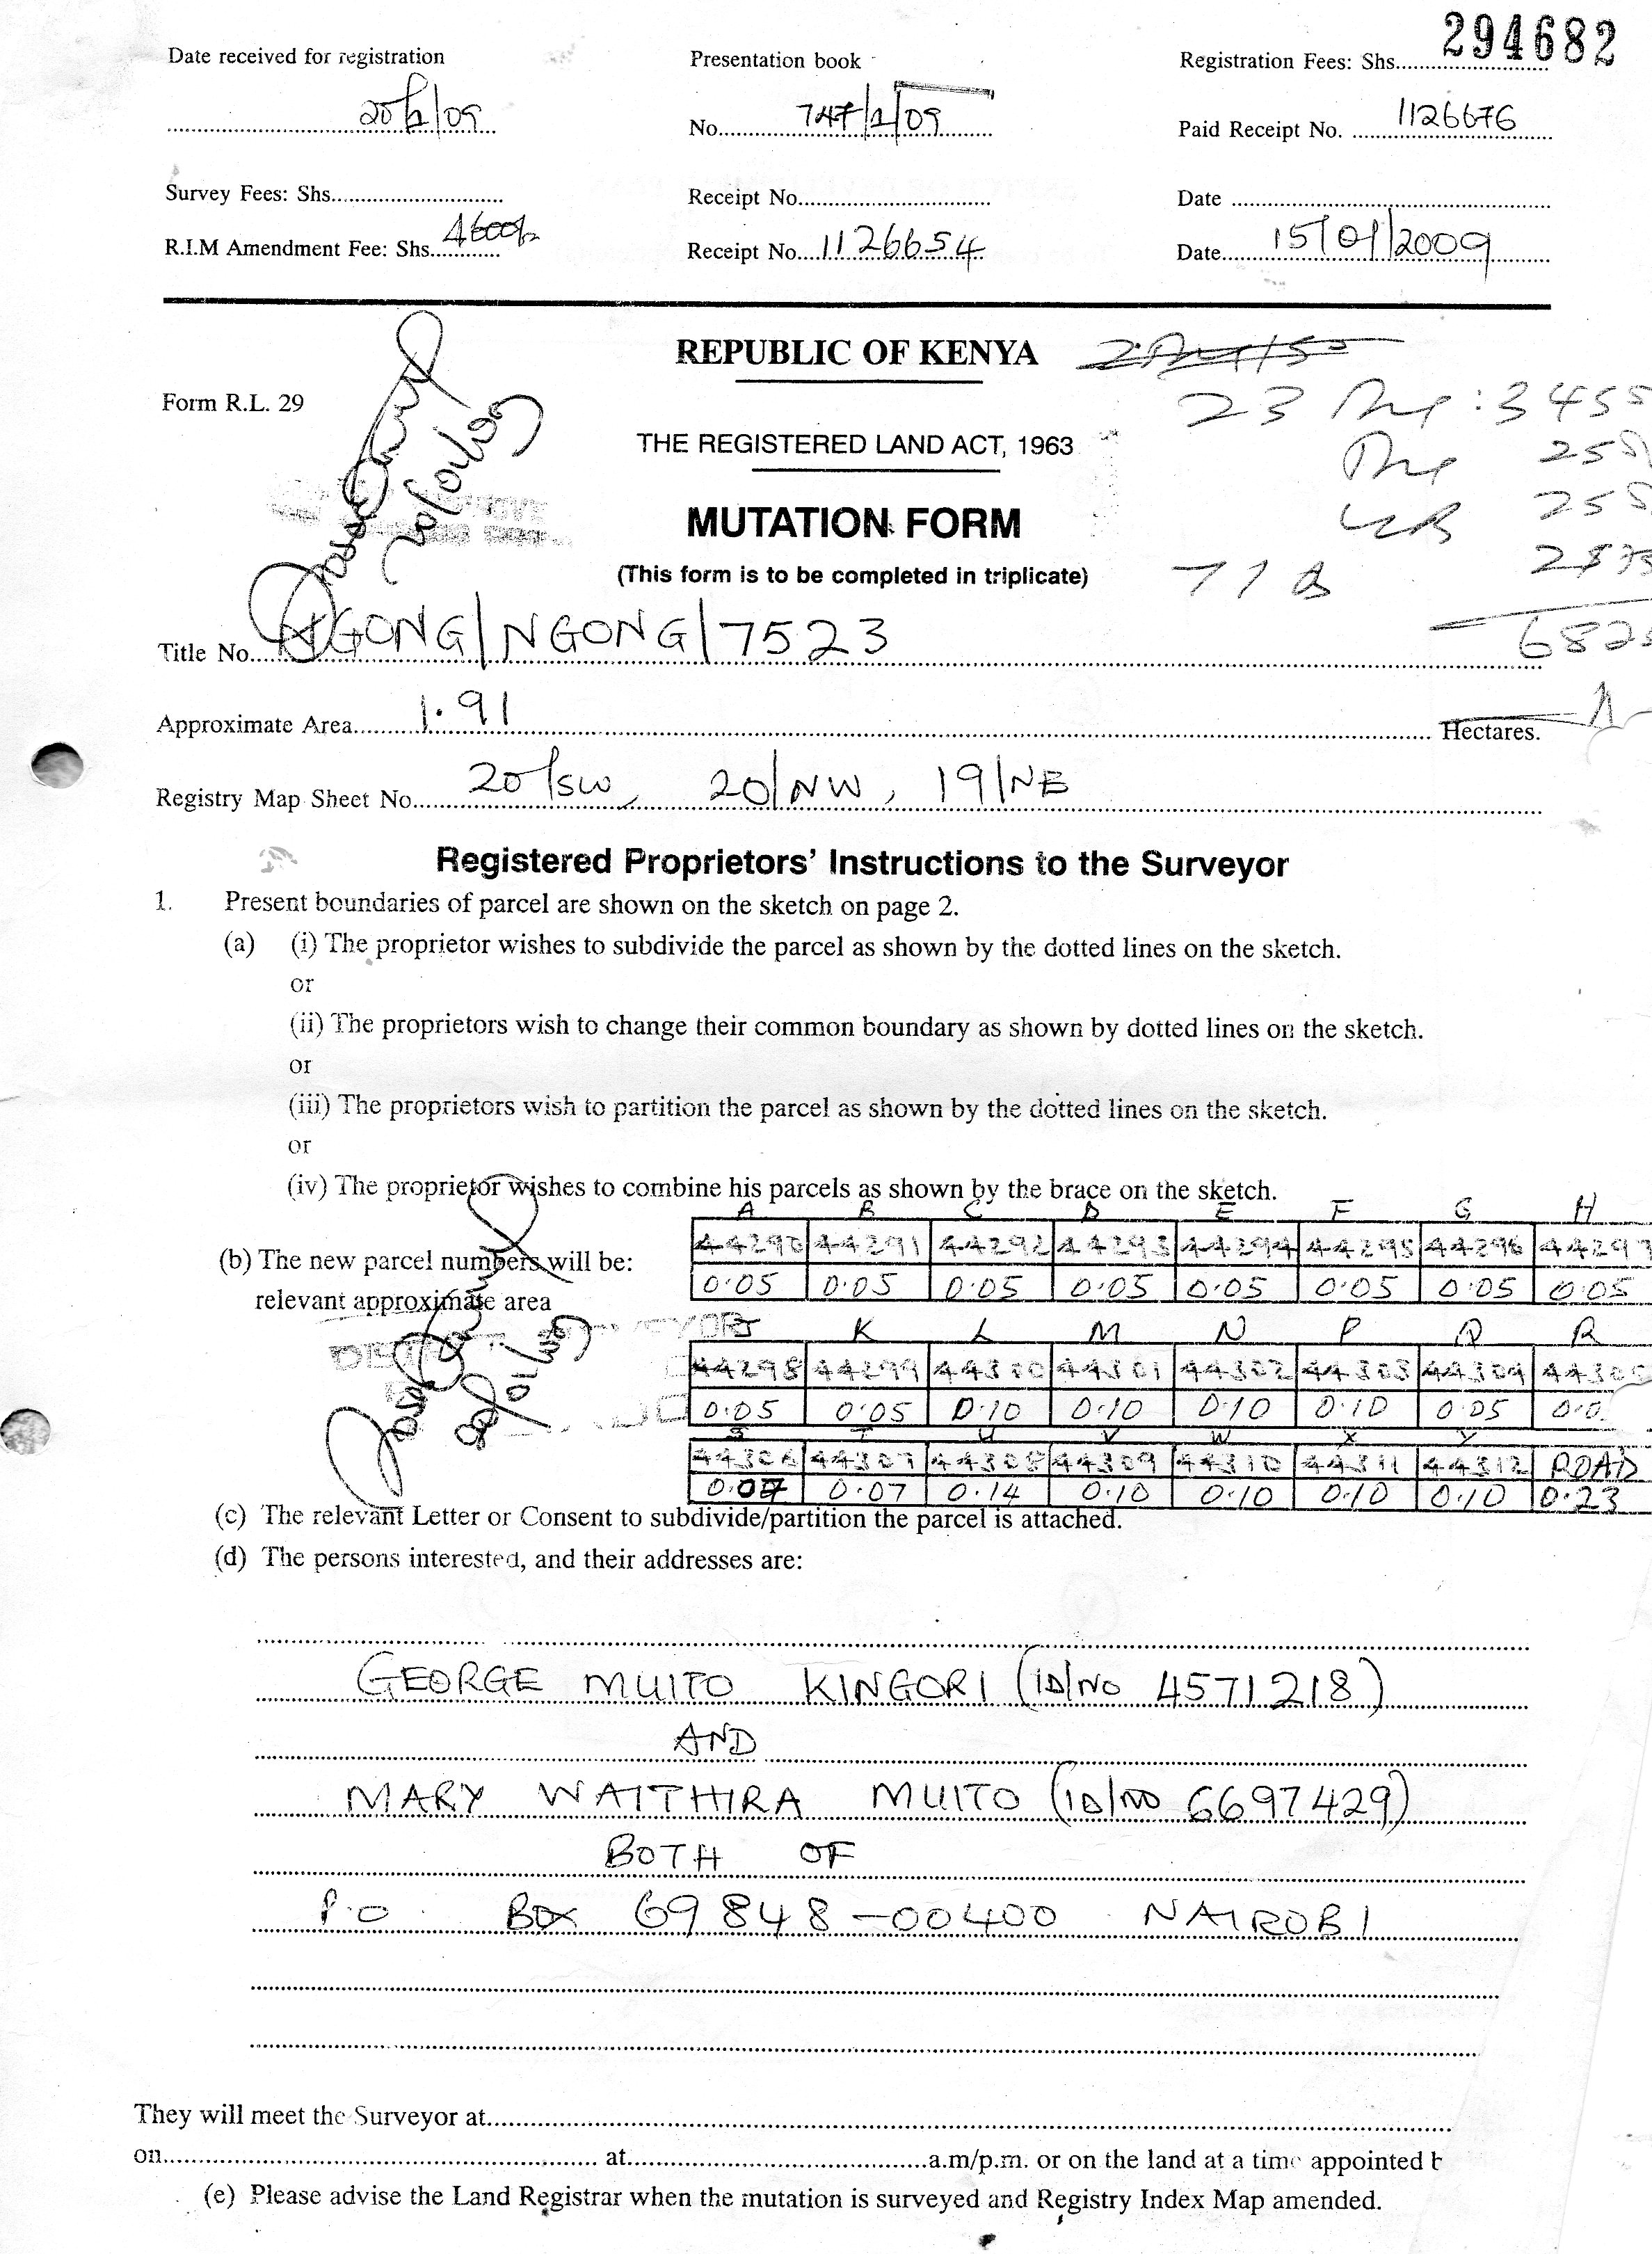 294682
Date received for registration Presentation book Registration Fees: Shs..........
20/2/09 No. 747/2/09 Paid Receipt No. 1126676
Survey Fees: Shs.......... Receipt No.......... Date ..........
R.I.M Amendment Fee: Shs. 4600/= Receipt No. 1126654 Date 15/01/2009
REPUBLIC OF KENYA
Form R.L. 29
23 : 3455
THE REGISTERED LAND ACT, 1963
20/01/09
MUTATION FORM
(This form is to be completed in triplicate)
Title No. NGONG/NGONG/7523
Approximate Area 1.91 Hectares.
Registry Map Sheet No. 20/SW, 20/NW, 19/NE
Registered Proprietors' Instructions to the Surveyor
1. Present boundaries of parcel are shown on the sketch on page 2.
(a) (i) The proprietor wishes to subdivide the parcel as shown by the dotted lines on the sketch.
or
(ii) The proprietors wish to change their common boundary as shown by dotted lines on the sketch.
or
(iii) The proprietors wish to partition the parcel as shown by the dotted lines on the sketch.
or
(iv) The proprietor wishes to combine his parcels as shown by the brace on the sketch.
A B C D E F G H
(b) The new parcel numbers will be: 44290 44291 44292 44293 44294 44295 44296 44297
relevant approximate area 0.05 0.05 0.05 0.05 0.05 0.05 0.05 0.05
K L M N P Q R
44298 44299 44300 44301 44302 44303 44304 44305
0.05 0.05 0.10 0.10 0.10 0.10 0.05
20/01/09
S T U V W X Y
44306 44307 44308 44309 44310 44311 44312 ROAD
0.07 0.07 0.14 0.10 0.10 0.10 0.10 0.23
(c) The relevant Letter or Consent to subdivide/partition the parcel is attached.
(d) The persons interested, and their addresses are:
GEORGE MUITO KINGORI (ID/NO 4571218)
AND
MARY WAITHIRA MUITO (ID/NO 6697429)
BOTH OF
P.O BOX 69848-00400 NAIROBI
They will meet the Surveyor at..........
on.......... at..........a.m/p.m. or on the land at a time appointed b
(e) Please advise the Land Registrar when the mutation is surveyed and Registry Index Map amended.